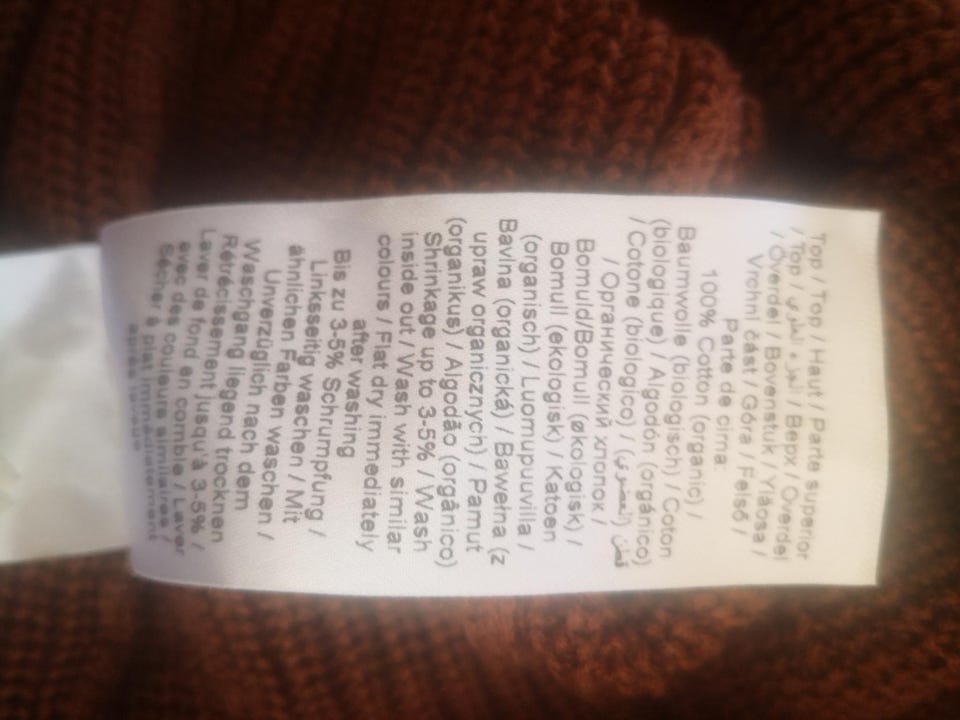 Top / Top / Haut / Parte superior
/ Top / الجزء العلوي / Верх / Overdel
/ Överdel / Bovenstuk / Yläosa /
Vrchní část / Góra / Felső /
Parte de cima:
100% Cotton (organic) /
Baumwolle (biologisch) / Coton
(biologique) / Algodón (orgánico)
/ Cotone (biologico) / قطن (عضوي)
/ Органический хлопок /
Bomuld/Bomull (økologisk) /
Bomull (ekologisk) / Katoen
(organisch) / Luomupuuvilla /
Bavlna (organická) / Bawełna (z
upraw organicznych) / Pamut
(organikus) / Algodão (orgânico)
Shrinkage up to 3-5% / Wash
inside out / Wash with similar
colours / Flat dry immediately
after washing
Bis zu 3-5% Schrumpfung /
Linksseitig waschen / Mit
ähnlichen Farben waschen /
Unverzüglich nach dem
Waschgang liegend trocknen
Rétrécissement jusqu'à 3-5% /
Laver de fond en comble / Laver
avec des couleurs similaires /
Sécher à plat immédiatement
après lavage